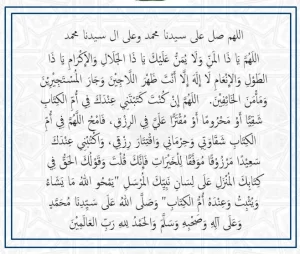 اللهم صل على سيدنا محمد وعلى ال سيدنا محمد
اللَّهُمَّ يَا ذَا الْمَنِّ وَلَا يُمَنُّ عَلَيْكَ يَا ذَا الْجَلَالِ وَالْإِكْرَامِ يَا ذَا
الطَّوْلِ وَالْإِنْعَامِ لَا إِلَهَ إِلَّا أَنْتَ ظَهْرَ اللَّاجِينَ وَجَارَ الْمُسْتَجِيرِينَ
وَمَأْمَنَ الْخَائِفِينَ. اللَّهُمَّ إِنْ كُنْتَ كَتَبْتَنِي عِنْدَكَ فِي أُمِّ الْكِتَابِ
شَقِيًّا أَوْ مَحْرُومًا أَوْ مُقَتَّرًا عَلَيَّ فِي الرِّزْقِ، فَامْحُ اللَّهُمَّ فِي أُمِّ
الْكِتَابِ شَقَاوَتِي وَحِرْمَانِي وَاقْتِتَارَ رِزْقِي، وَاكْتُبْنِي عِنْدَكَ
سَعِيدًا مَرْزُوقًا مُوَفَّقًا لِلْخَيْرَاتِ فَإِنَّكَ قُلْتَ وَقَوْلُكَ الْحَقُّ فِي
كِتَابِكَ الْمُنْزَلِ عَلَى لِسَانِ نَبِيِّكَ الْمُرْسَلِ "يَمْحُو اللَّهُ مَا يَشَاءُ
وَيُثْبِتُ وَعِنْدَهُ أُمُّ الْكِتَابِ" وَصَلَّى اللَّهُ عَلَى سَيِّدِنَا مُحَمَّدٍ
وَعَلَى آلِهِ وَصَحْبِهِ وَسَلَّمَ وَالْحَمْدُ لِلَّهِ رَبِّ الْعَالَمِينَ